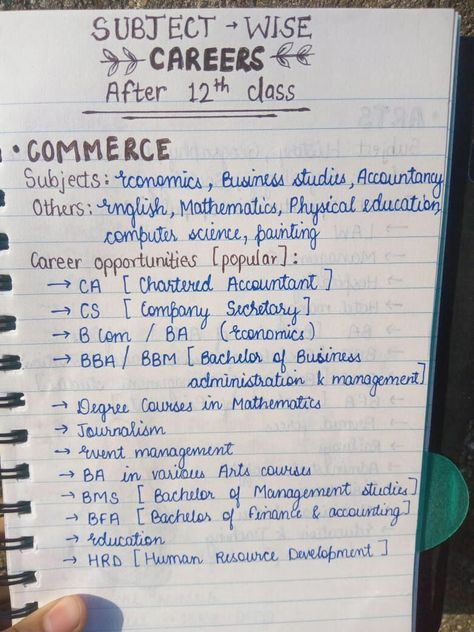 SUBJECT → WISE
CAREERS
After 12th class
• COMMERCE
Subjects: Economics, Business studies, Accountancy
Others: English, Mathematics, Physical education,
computer science, painting
Career opportunities [popular]:
→ CA [Chartered Accountant]
→ CS [Company Secretary]
→ B Com / BA (Economics)
→ BBA / BBM [Bachelor of Business
administration & management]
→ Degree Courses in Mathematics
→ Journalism
→ Event management
→ BA in various Arts courses
→ BMS [Bachelor of Management studies]
→ BFA [Bachelor of Finance & accounting]
→ Education
→ HRD [Human Resource Development]